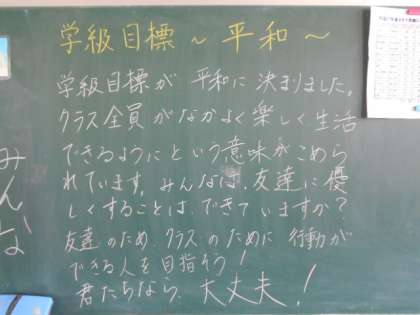 学級目標 ～ 平和 ～
学級目標が 平和に 決まりました。
クラス全員 がなかよく楽しく生活
できるようにという意味がこめら
れています。みんなは、友達に優
しくすることは、できていますか？
友達のため、クラスのために 行動が
できる人を目指そう！
君たちなら、大丈夫！
みんな